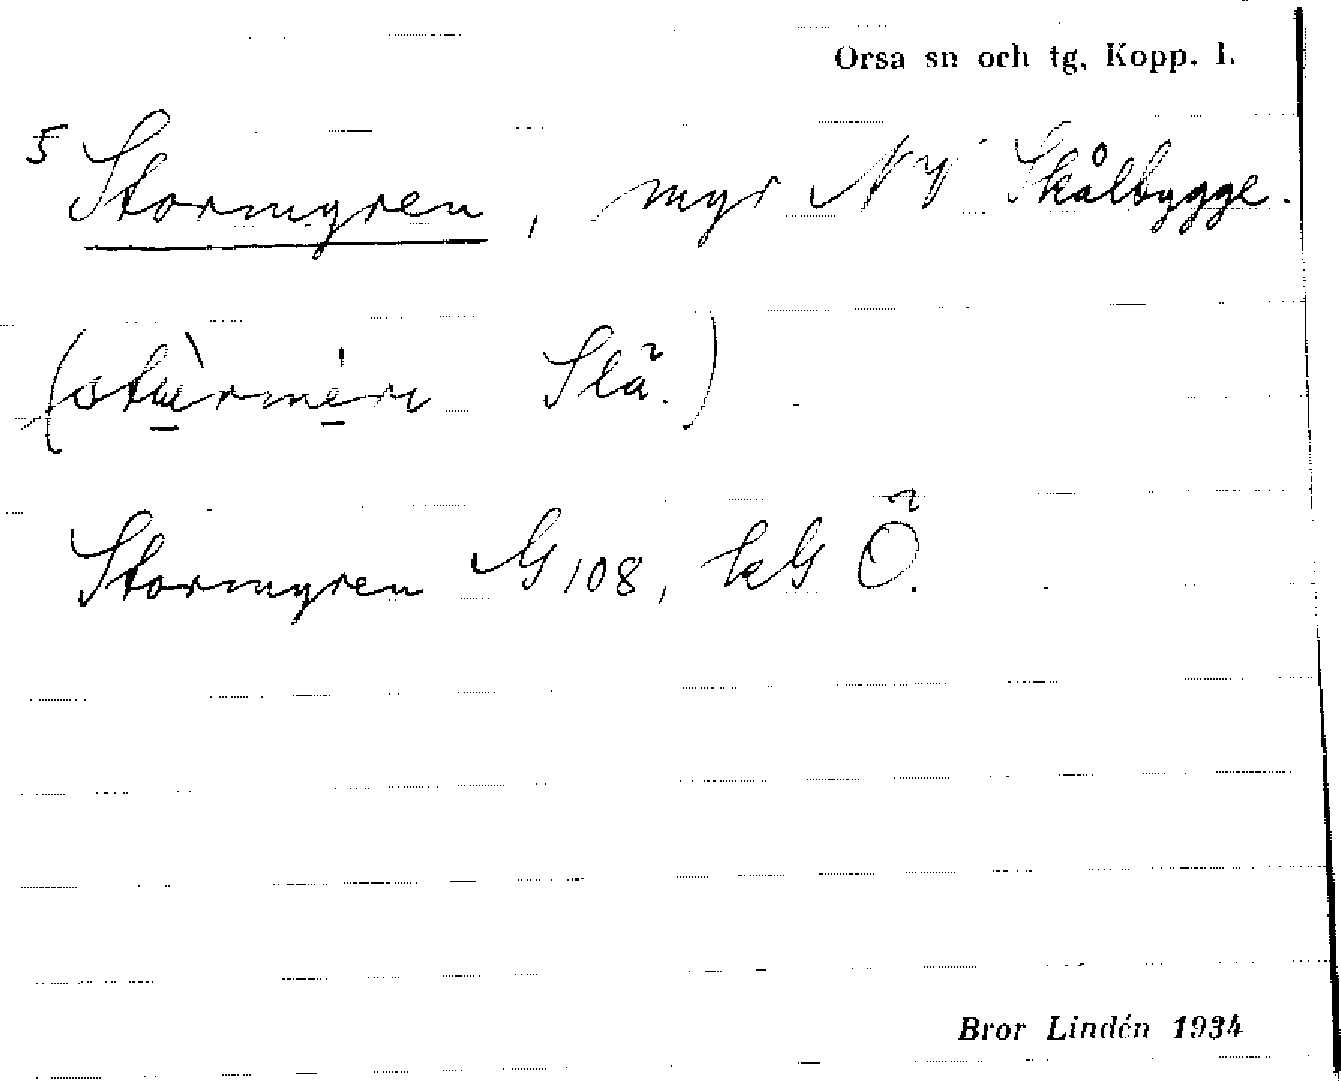 Orsa sn och tg, Kopp. l.
5 Stormyren, myr NV Skålbygge.
(stu̠̇rmė̠rı Slä̃.)
Stormyren G 108, kG Õ.
Bror Lindén 1934